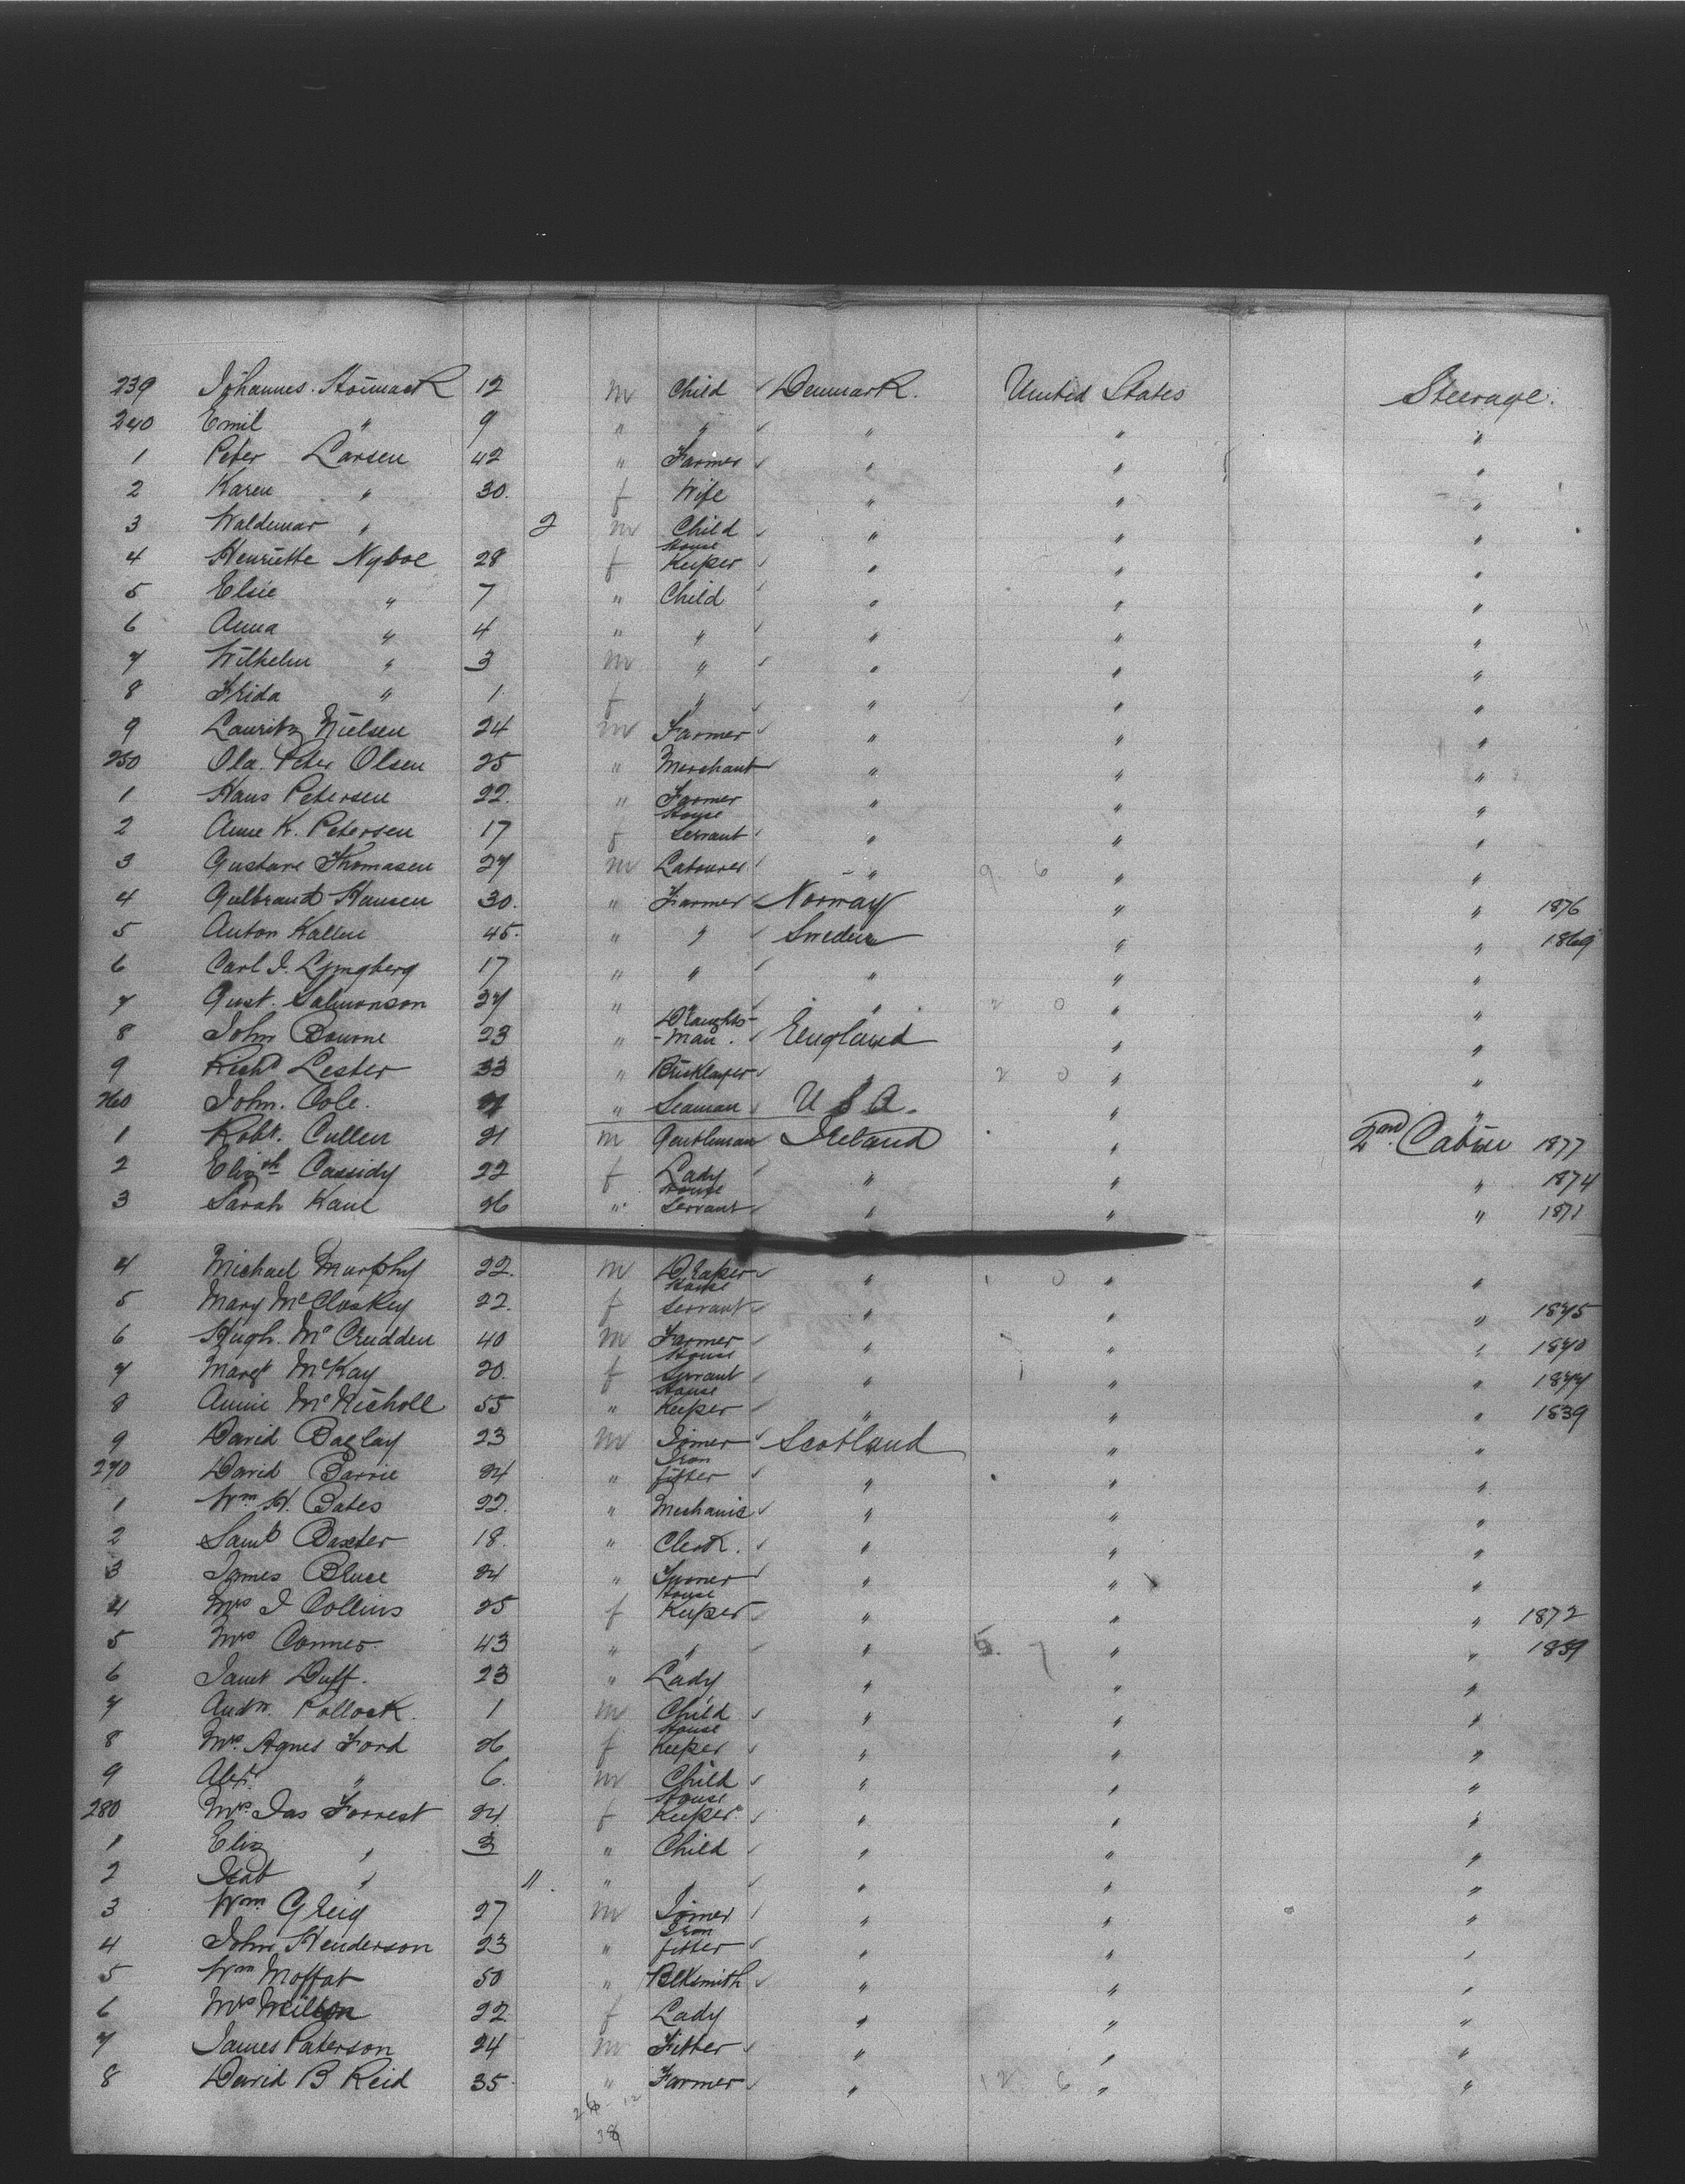 239 Johannes. 12 m Child Denmark. United States Steerage.
240 Emil " 9 " " " " "
1 Peter Larsen 42 " Farmer " " "
2 Karen " 30. f Wife " " "
3 Waldemar " 2 m Child " " "
4 Henriette Nyboe 28 f House Keeper " " "
5 Elsie " 7 " Child " " "
6 Anna " 4 " " " " "
7 Wilhelm " 3 m " " " "
8 Frida " 1 f " " " "
9 Lauritz Nielsen 24 m Farmer " " "
250 Ola. Peter Olsen 25 " Merchant " " "
1 Hans Petersen 22. " Farmer " " "
2 Anne K. Petersen 17 f House Servant " " "
3 Gustave Thomasen 27 m Labourer " 9 6 " "
4 Gulbrand Hansen 30. " Farmer Norway " " 1876
5 Anton Kallen 45. " " Sweden " " 1869
6 Carl J. Ljungberg 17 " " " " "
7 Gust. Salmonson 27 " " " 2 0 " "
8 John Bourne 23 " Draughts-man. England " "
9 Richd Lester 33 " Bricklayer " 2 0 " "
260 John. Cole. " Seaman U S A. " "
1 Robt. Cullen 21 m Gentleman Ireland " 2nd Cabin 1877
2 Elizth Cassidy 22 f Lady " " " 1874
3 Sarah Kane 26 " House Servant " " " 1871
4 Michael Murphy 22. m Draper " 1 0 " "
5 Mary McCloskey 22. f House Servant " " " 1875
6 Hugh. McCrudden 40 m Farmer " " " 1870
7 Margt McKay 20. f House Servant " 1 " " 1877
8 Annie McNicholl 55 " House Keeper " " " 1839
9 David Baglay 23 m Joiner Scotland " "
270 David Barrie 24 " Iron fitter " " "
1 Wm H. Bates 22. " Mechanic " " "
2 Saml Baxter 18. " Clerk. " " "
3 James Bruce 24 " Joiner " " "
4 Mrs J Collins 25 f House Keeper " " " 1872
5 Mrs Conner 43 " " " 5. 7 " " 1859
6 Janet Duff. 23 " Lady " " "
7 Andw. Pollock. 1 m Child " " "
8 Mrs. Agnes Ford 26 f House Keeper " " "
9 Alexr " 6. m Child " " "
280 Mrs. Jas Forrest 24 f House Keeper " " "
1 Eliz " 3 " Child " " "
2 Isab " 11. " " " " "
3 Wm. Greig 27 m Joiner " " "
4 John Henderson 23 " Iron fitter " " "
5 Wm Moffat 50 " Blksmith " " "
6 Mrs Milton 22 f Lady " " "
7 James Paterson 24 m Fitter " " "
8 David B Reid 35. " Farmer " 12 6 " "
26 12
38